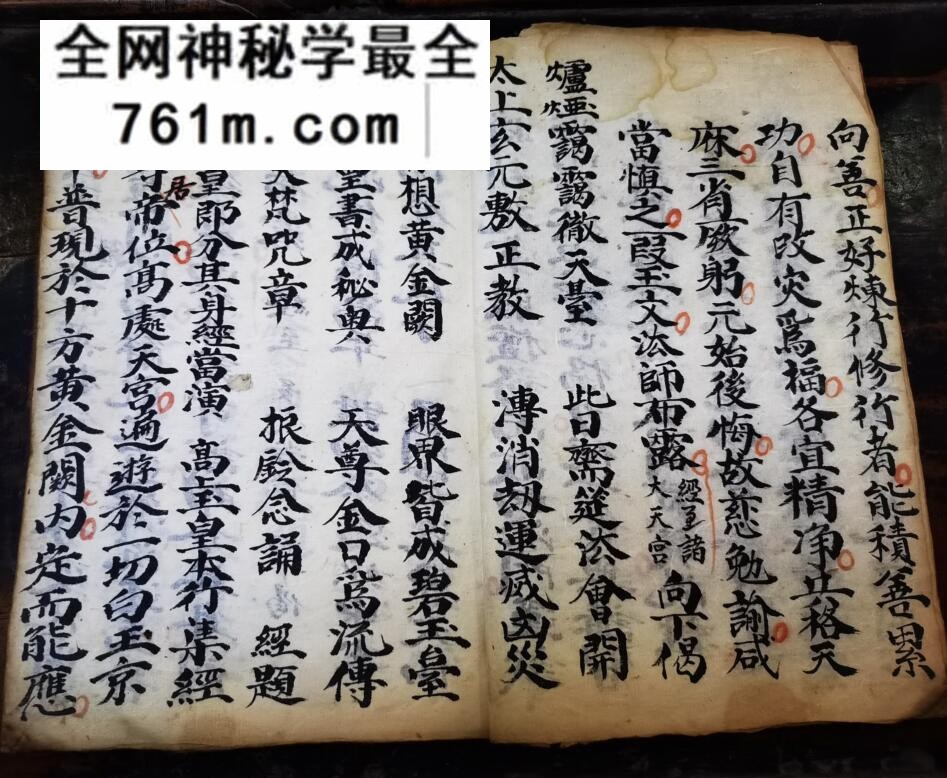 全网神秘学最全
761m.com
向善正好煉行修行者能積善累
功自有改灾爲福各宜精净上格天
庥三省敛躬元始後悔故慈勉諭咸
當慎之 段玉文法師布露 經至諸大天宮 向下偈
爐烟靄靄徹天臺 此日齋筵法會開
太上玄元敷正教 溥消刼運減凶災
想黃金闕 眼界皆成碧玉臺
皇書成秘典 天尊金口爲流傳
天梵咒章 振鈴念誦 經題
皇郎分其身經當演 高上玉皇本行集經
居帝位高處天宮遍遊於一切白玉京
普現於十方黃金闕内定而能應